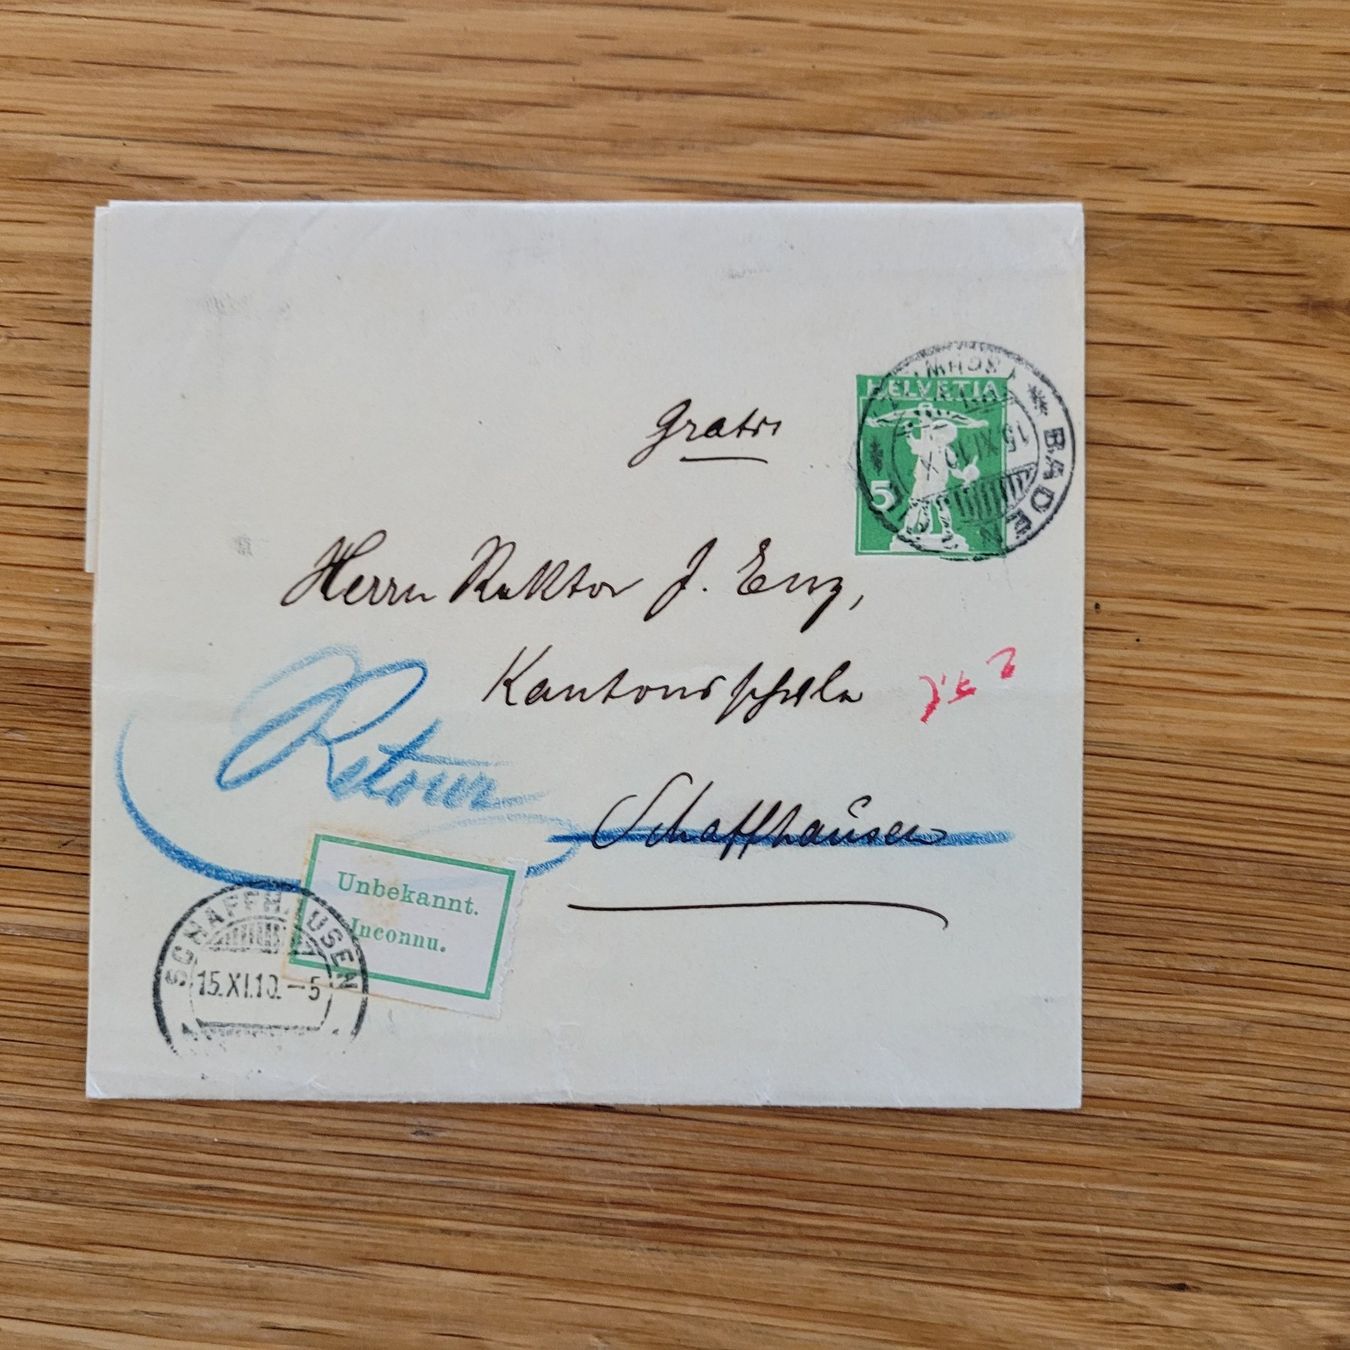 HELVETIA
5
BADEN (SCHWEIZ)
15.XI.10.X
Gratis
Herrn Rektor J. Enz,
Kantonsschule
Schaffhausen
Retour
Unbekannt.
Inconnu.
SCHAFFHAUSEN
15.XI.10.–5